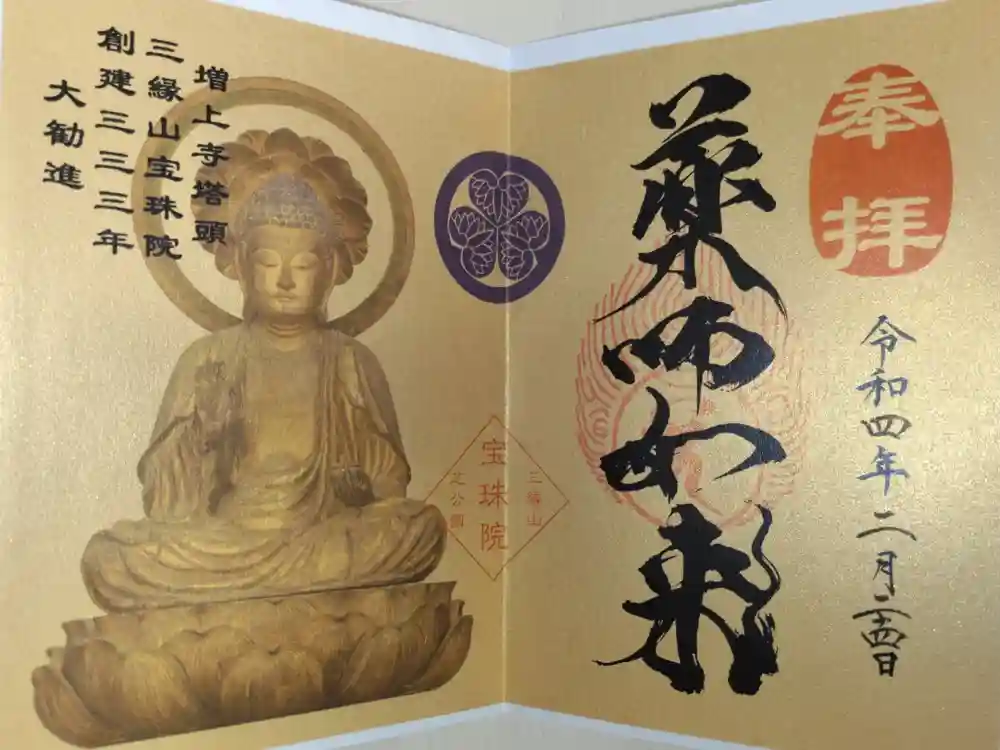 奉拝
令和四年二月二四日
薬師如来
三縁山
宝珠院
芝公園
増上寺塔頭
三縁山宝珠院
創建三三三年
大勧進